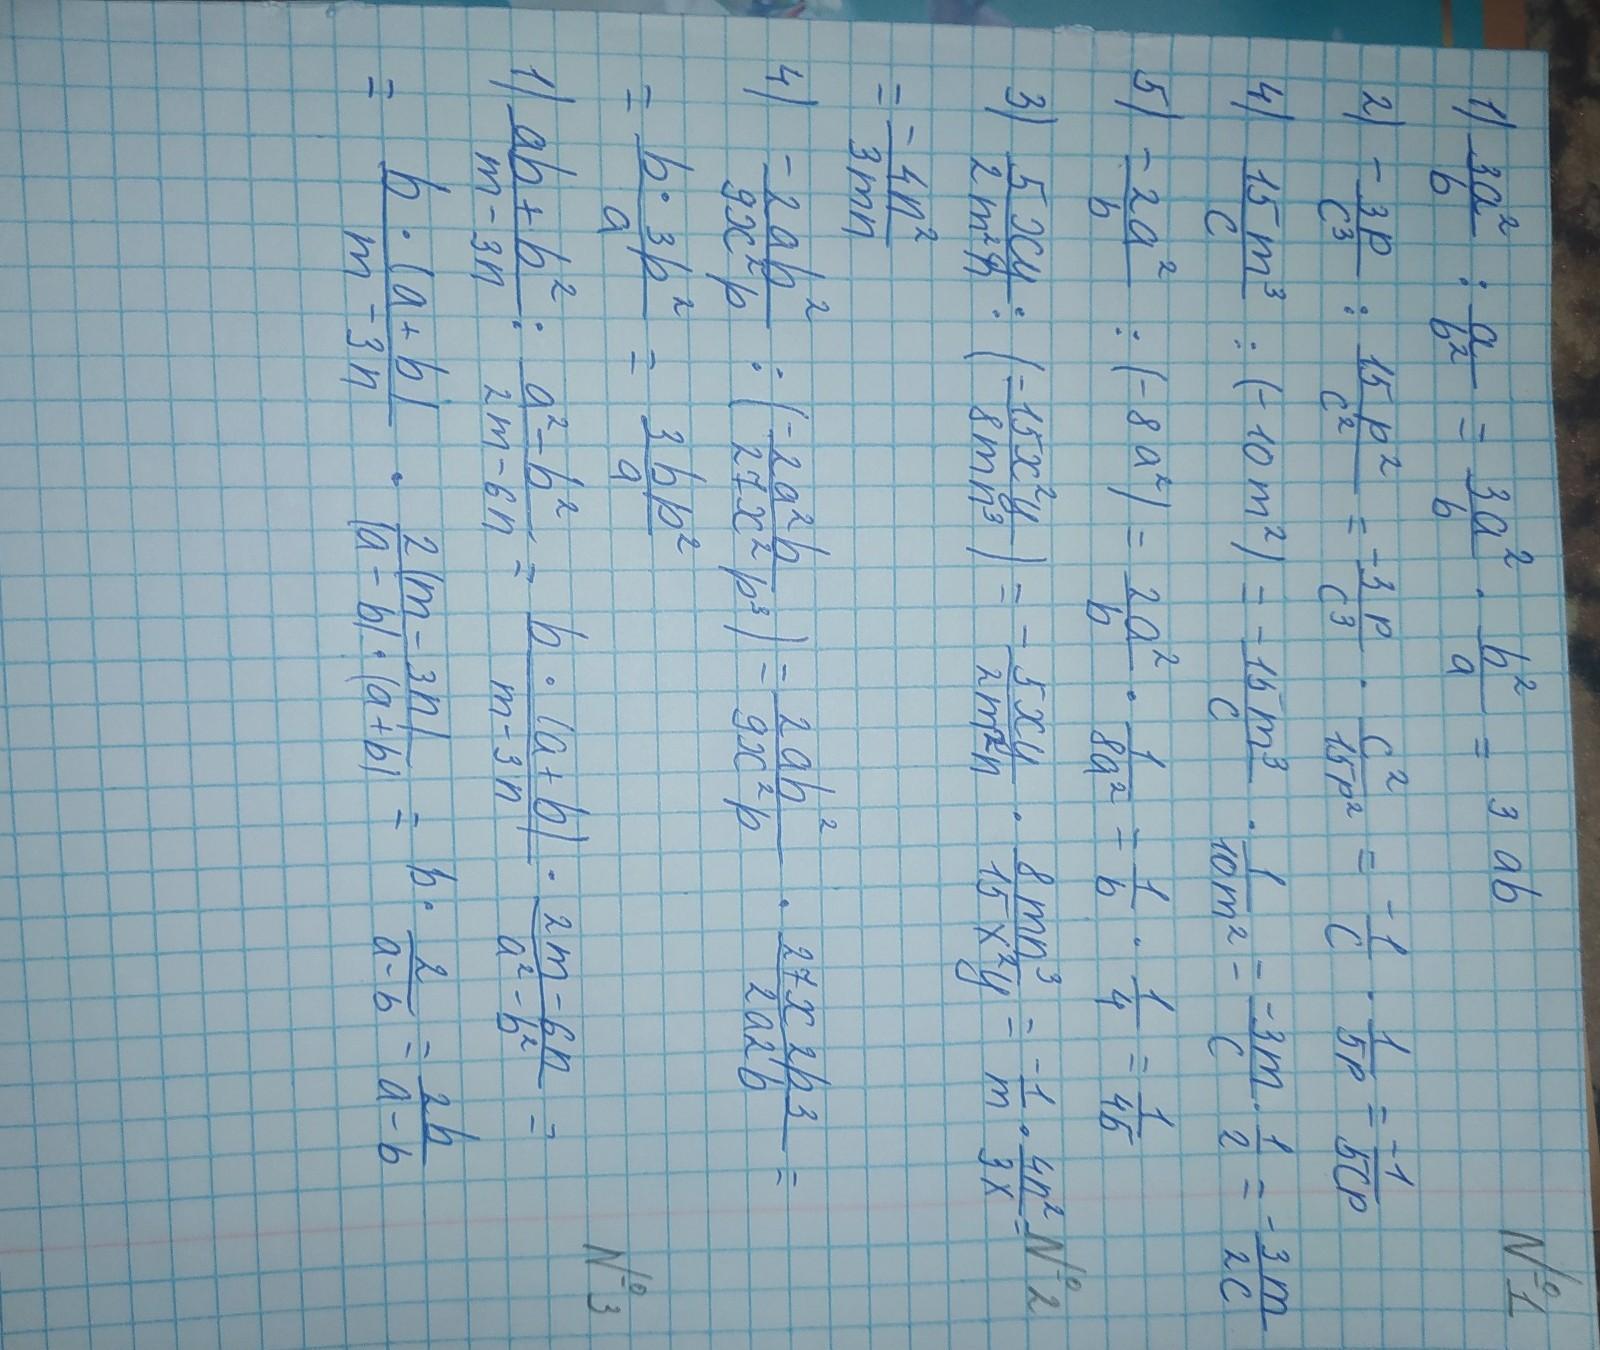 №1
1) 3a²/b : a/b² = 3a²/b · b²/a = 3ab
2) -3p/c³ : 15p²/c² = -3p/c³ · c²/15p² = -1/c · 1/5p = -1/5cp
4) 15m³/c : (-10m²) = -15m³/c · 1/10m² = -3m/c · 1/2 = -3m/2c
5) -2a²/b : (-8a²) = 2a²/b · 1/8a² = 1/b · 1/4 = 1/4b
№2
3) 5xy/2m²n : (-15x²y/8mn³) = -5xy/2m²n · 8mn³/15x²y = -1/m · 4n²/3x =
= -4n²/3mn
4) -2ab²/9x²p : (-2a²b/27x²p³) = 2ab²/9x²p · 27x2p3/2a2b =
= b·3p²/a = 3bp²/a
№3
1) ab+b²/m-3n : a²-b²/2m-6n = b·(a+b)/m-3n · 2m-6n/a²-b² =
= b·(a+b)/m-3n · 2(m-3n)/(a-b)·(a+b) = b· 2/a-b = 2b/a-b